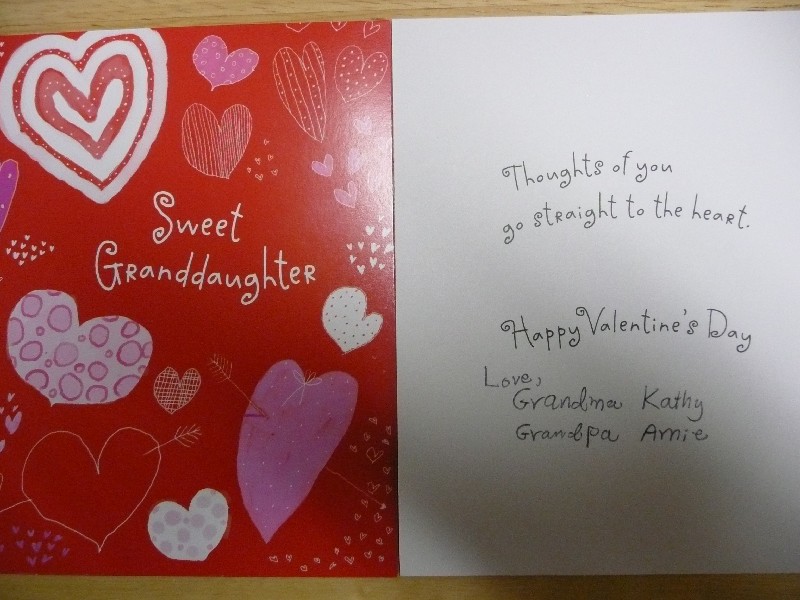 Sweet
Granddaughter
Thoughts of you
go straight to the heart.
Happy Valentine's Day
Love,
Grandma Kathy
Grandpa Arnie